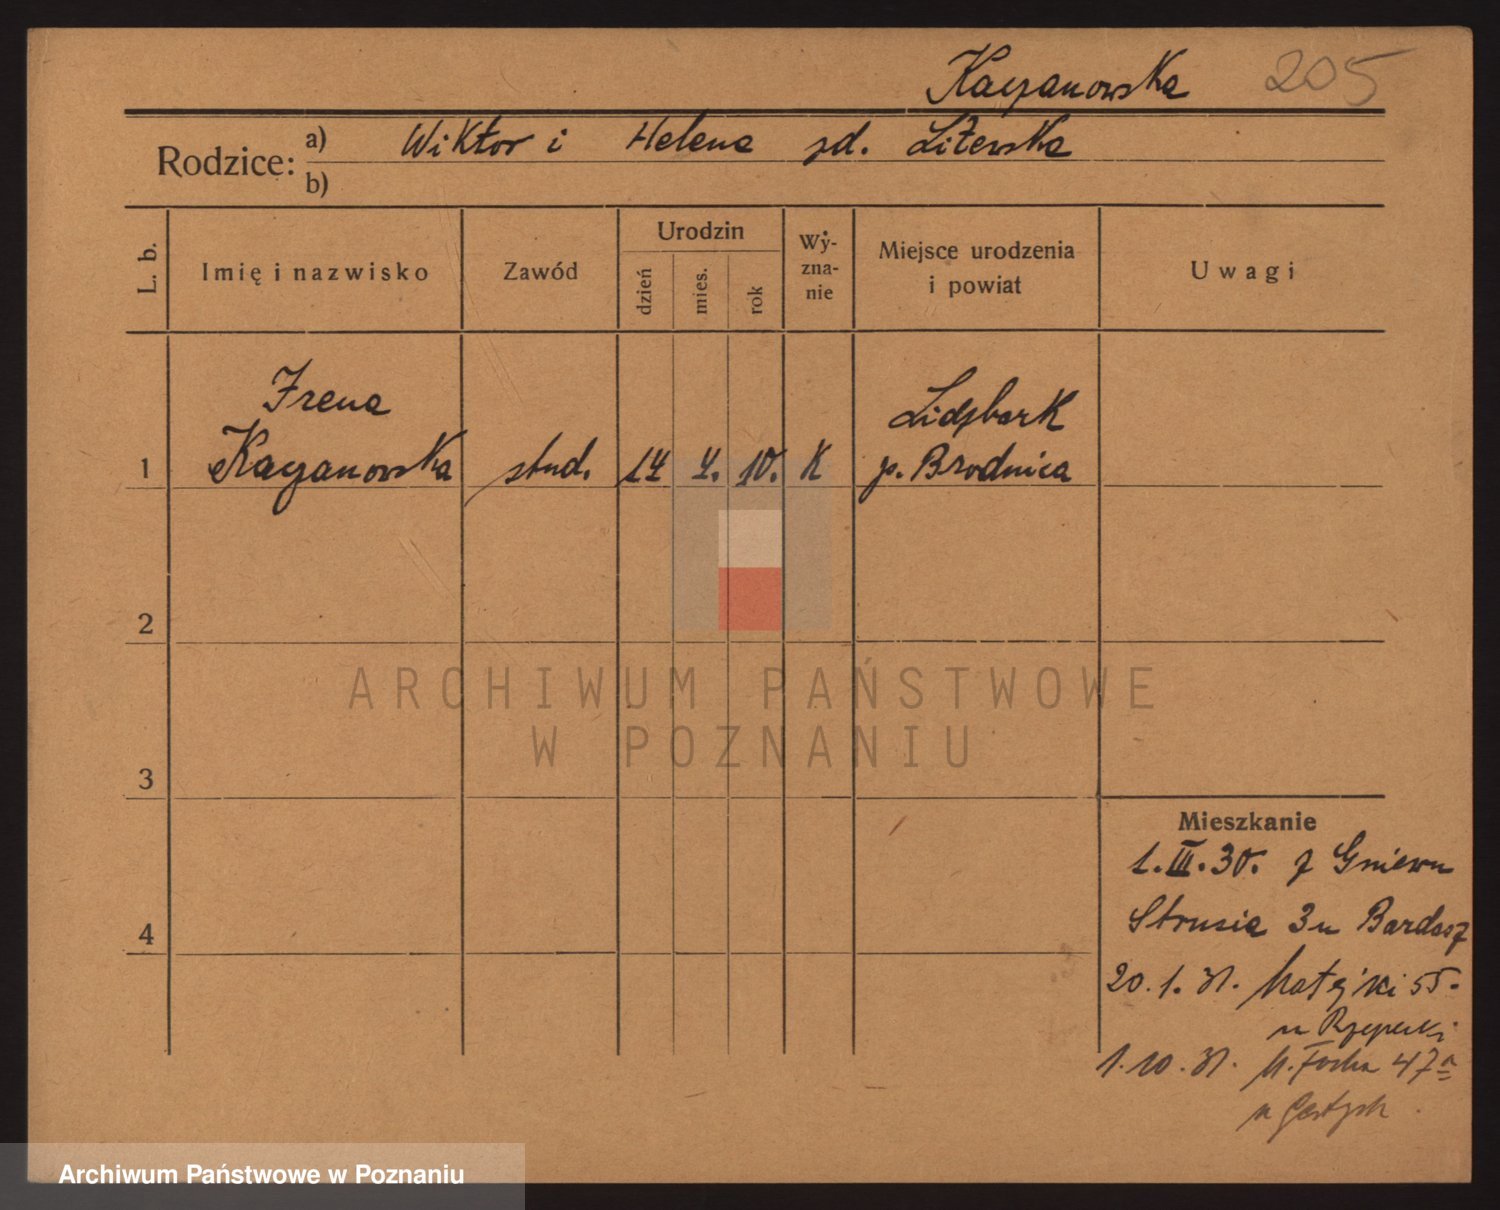 Kaczanowska 205
Rodzice: a) Wiktor i Helena zd. Litewska
b)
L. b. Imię i nazwisko Zawód Urodzin dzień mies. rok Wyznanie Miejsce urodzenia i powiat Uwagi
Irena Lidzbark
1 Kaczanowska stud. 14 4. 10. K p. Brodnica
2
ARCHIWUM PAŃSTWOWE
W POZNANIU
3
Mieszkanie
1.III.30. z Gniewu
4 Strusia 3 u Bardosz
20.1.31. Matejki 55.
u Rzepecki
1.10.31. M. Focha 47
u
Archiwum Państwowe w Poznaniu